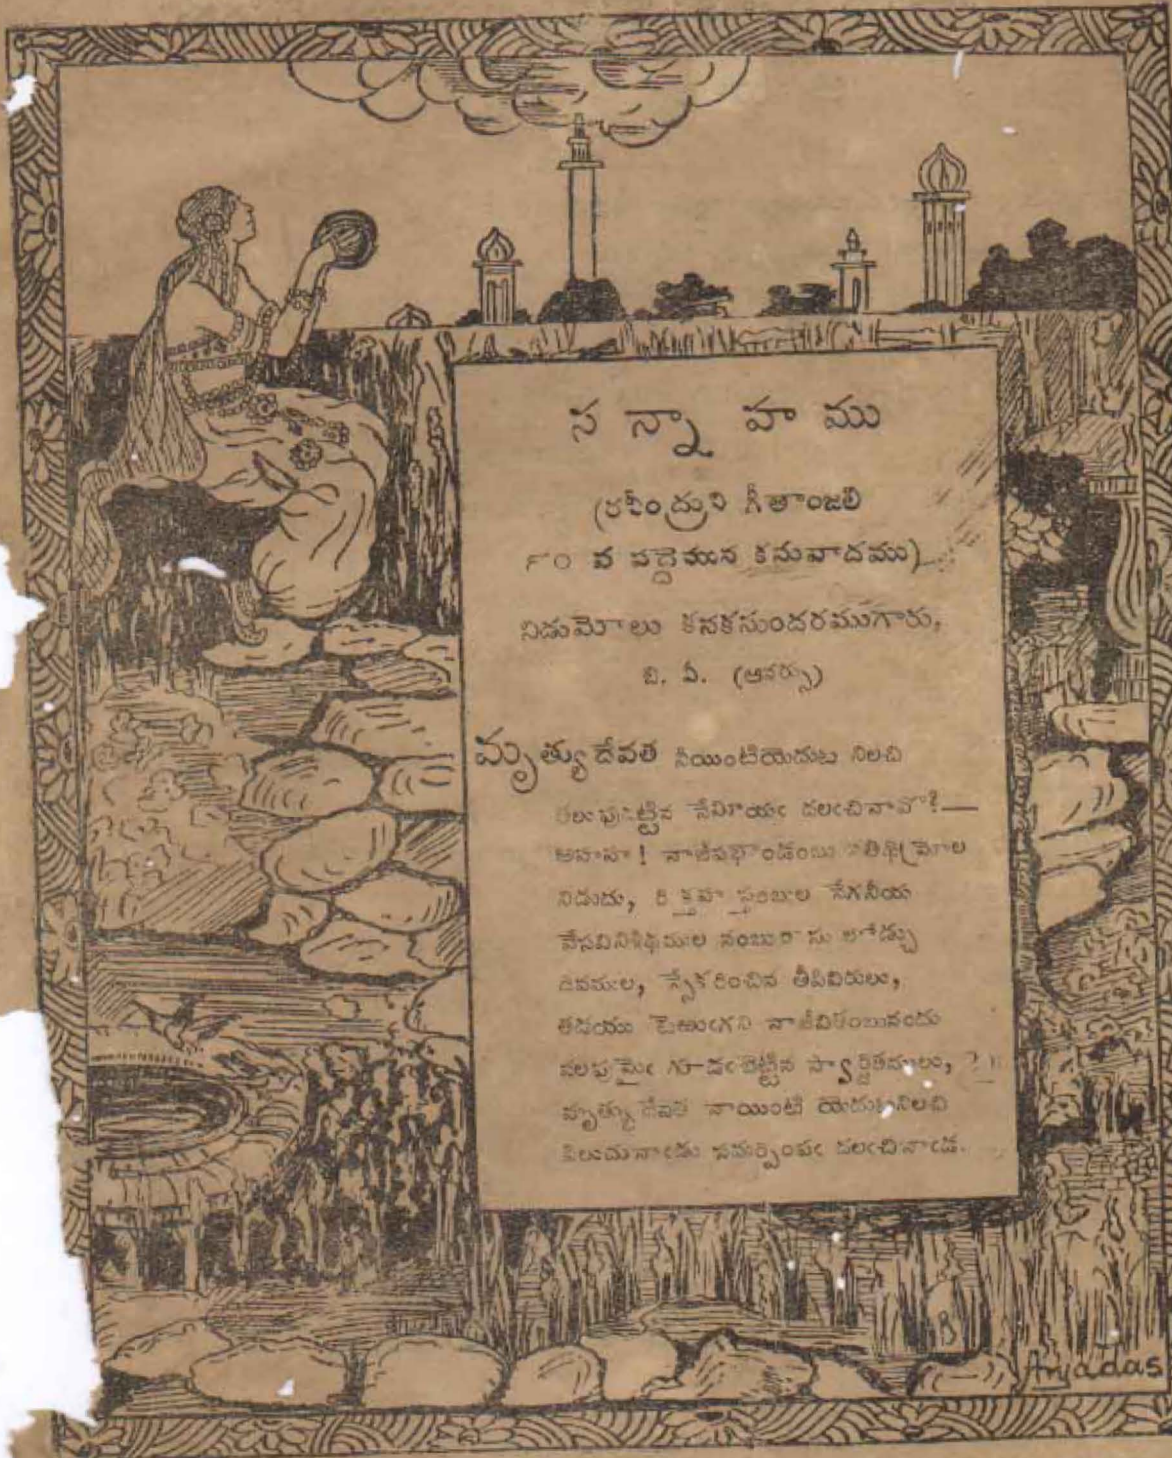 సన్నాహము
(రవీంద్రుని గీతాంజలి
౯౦ వ పద్దెమున కనువాదము)
నిడుమోలు కనకసుందరముగారు,
బి. ఏ. (ఆనర్సు)
మృత్యుదేవత నీయింటియెదుట నిలచి
తలుపుదట్టిన నేమీయఁ దలఁచినావొ?—
అహహ! నాజీవభాండంబు నతిథిమ్రోల
నిడుదు, రిక్తహస్తంబుల నేగనీయ
వేసవినిశీథముల నంబు
దివముల, స్వీకరించిన తీపివిరులు,
తడయు టెఱుఁగని నాజీవితంబునందు
వలపుమైఁ గూడఁబెట్టిన స్వార్జితములు,
మృత్యుదేవత నాయింటి యెదుటనిలచి
పిలుచునాఁడు సమర్పింపఁ దలఁచినాఁడ.
Aryadas